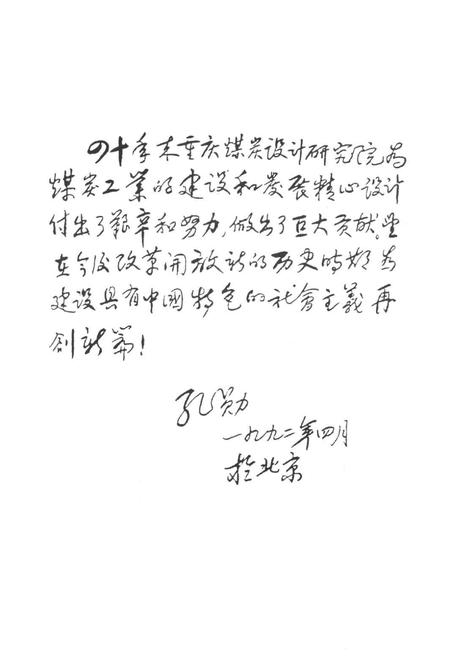 四十年来重庆煤炭设计研究院为
煤炭工业的建设和发展精心设计
付出了艰辛和努力,做出了巨大贡献。望
在今后改革开放新的历史时期为
建设具有中國特色的社會主義再
创新篇!
孔勋
一九九二年四月
於北京